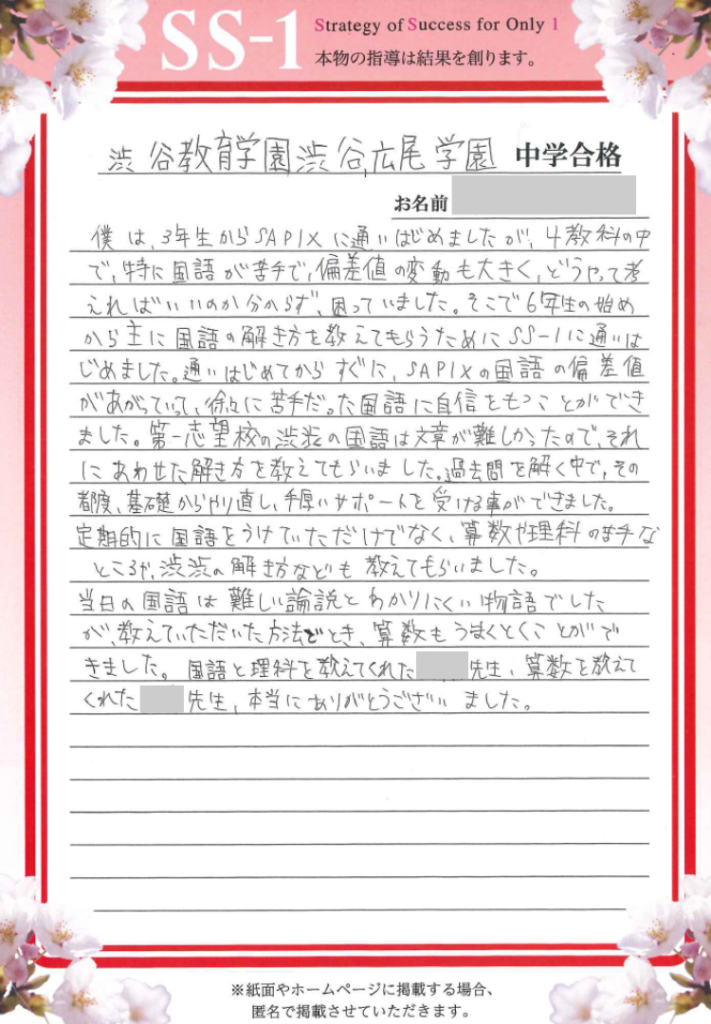 SS-1
Strategy of Success for Only 1
本物の指導は結果を創ります。
渋谷教育学園渋谷,広尾学園 中学合格
お名前
僕は、3年生からSAPIXに通いはじめましたが、4教科の中
で、特に国語が苦手で、偏差値の変動も大きく、どうやって考
えればいいのか分からず、困っていました。そこで6年生の始め
から主に国語の解き方を教えてもらうためにSS-1に通いは
じめました。通いはじめてからすぐに、SAPIXの国語の偏差値
があがっていって、徐々に苦手だった国語に自信をもつことができ
ました。第一志望校の渋渋の国語は文章が難しかったので、それ
にあわせた解き方を教えてもらいました。過去問を解く中で、その
都度、基礎からやり直し、手厚いサポートを受ける事ができました。
定期的に国語をうけていただけでなく、算数や理科の苦手な
ところや、渋渋の解き方なども教えてもらいました。
当日の国語は難しい論説とわかりにくい物語でした
が、教えていただいた方法でとき、算数もうまくとくことがで
きました。国語と理科を教えてくれた先生、算数を教えて
くれた先生、本当にありがとうございました。
※紙面やホームページに掲載する場合、
匿名で掲載させていただきます。